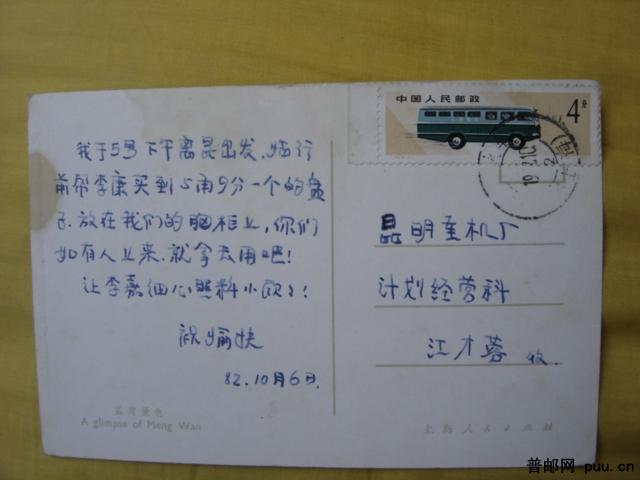 我于5号下午离昆出发.临行
前帮李康买到5角9分一个的盘
子.放在我们的碗柜上,你们
如有人上来.就拿去用吧!
让李嘉细心照料小
祝愉快
82.10月6日.
孟湾景色
A glimpse of Meng Wan
中国人民邮政
4分
昆明重机厂
计划经营科
江才蓉 收.
上海人民出版社
普邮网-puu.cn